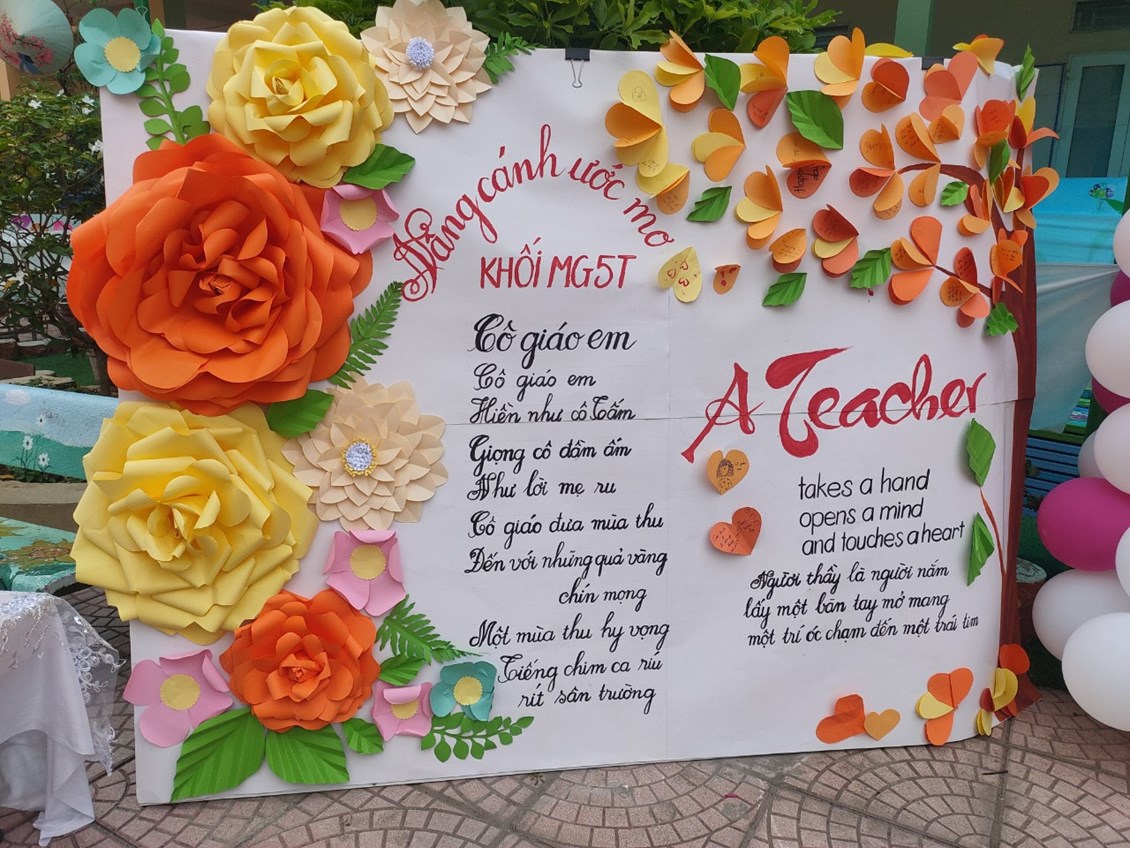 Nâng cánh ước mơ
KHỐI MG5T
Cô giáo em
Cô giáo em
Hiền như cô Tấm
Giọng cô đầm ấm
Như lời mẹ ru
Cô giáo đưa mùa thu
Đến với những quả vàng
chín mọng
Một mùa thu hy vọng
Tiếng chim ca ríu
rít sân trường
A Teacher
takes a hand
opens a mind
and touches a heart
Người thầy là người nắm
lấy một bàn tay mở mang
một trí óc chạm đến một trái tim